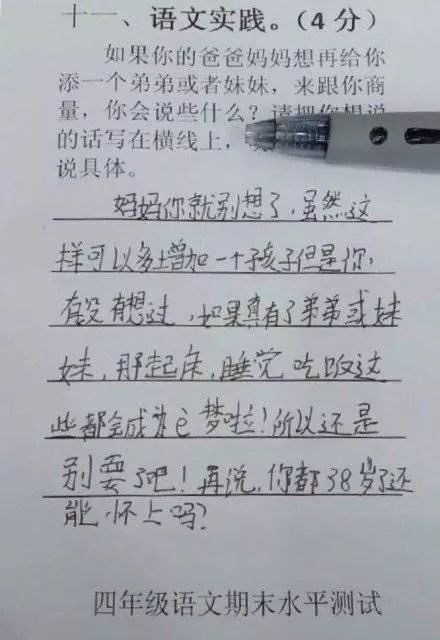 十一、语文实践。（4分）
如果你的爸爸妈妈想再给你
添一个弟弟或者妹妹，来跟你商
量，你会说些什么？请把你想说
的话写在横线上，
说具体。
妈妈你就别想了，虽然这
样可以多增加一个孩子但是你，
有没有想过，如果真有了弟弟或妹
妹，那起床，睡觉 吃饭这
些都会成为 梦啦！所以还是
别要了吧！再说，你都38岁了还
能怀上吗？
四年级语文期末水平测试